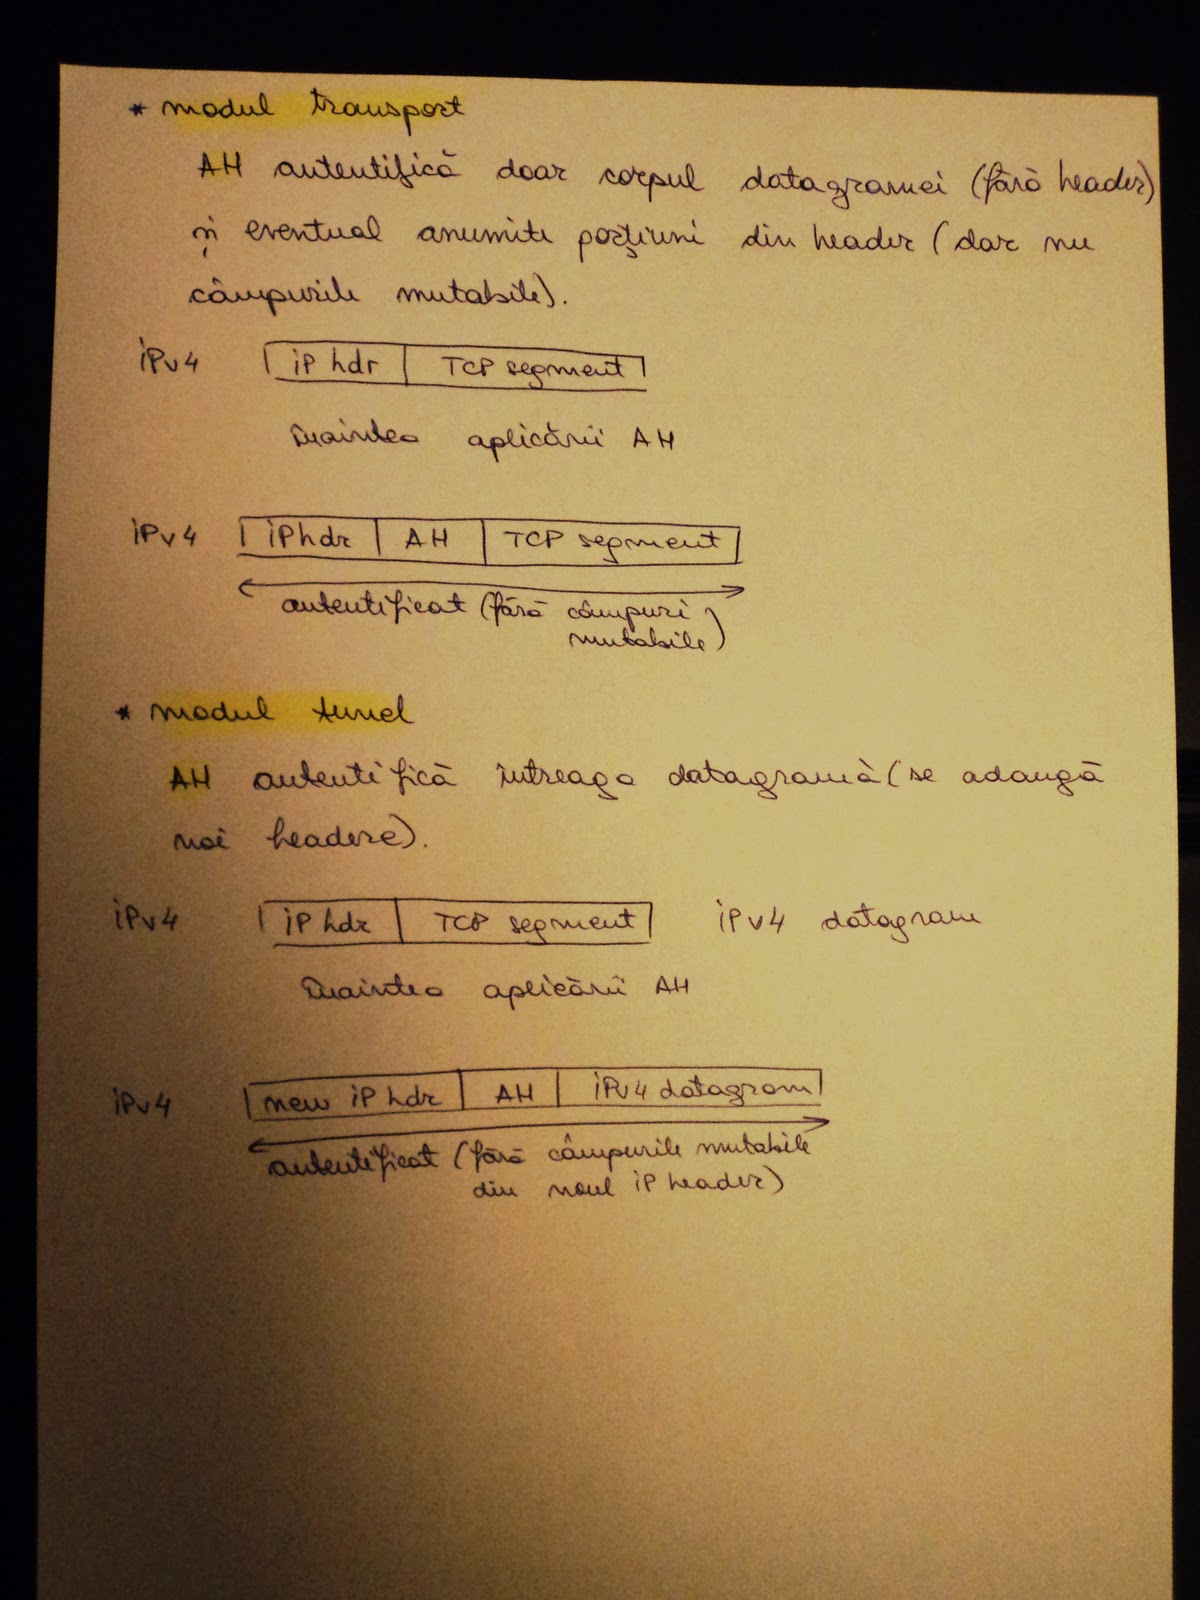 * modul transport
AH autentifică doar corpul datagramei (fără header)
și eventual anumite porțiuni din header (dar nu
câmpurile mutabile).
iPv4 iP hdr TCP segment
Înaintea aplicării AH
iPv4 iP hdr AH TCP segment
autentificat (fără câmpuri
mutabile)
* modul tunel
AH autentifică întreaga datagramă (se adaugă
noi headere).
iPv4 iP hdr TCP segment iPv4 datagram
Înaintea aplicării AH
iPv4 new iP hdr AH iPv4 datagram
autentificat (fără câmpurile mutabile
din noul iP header)